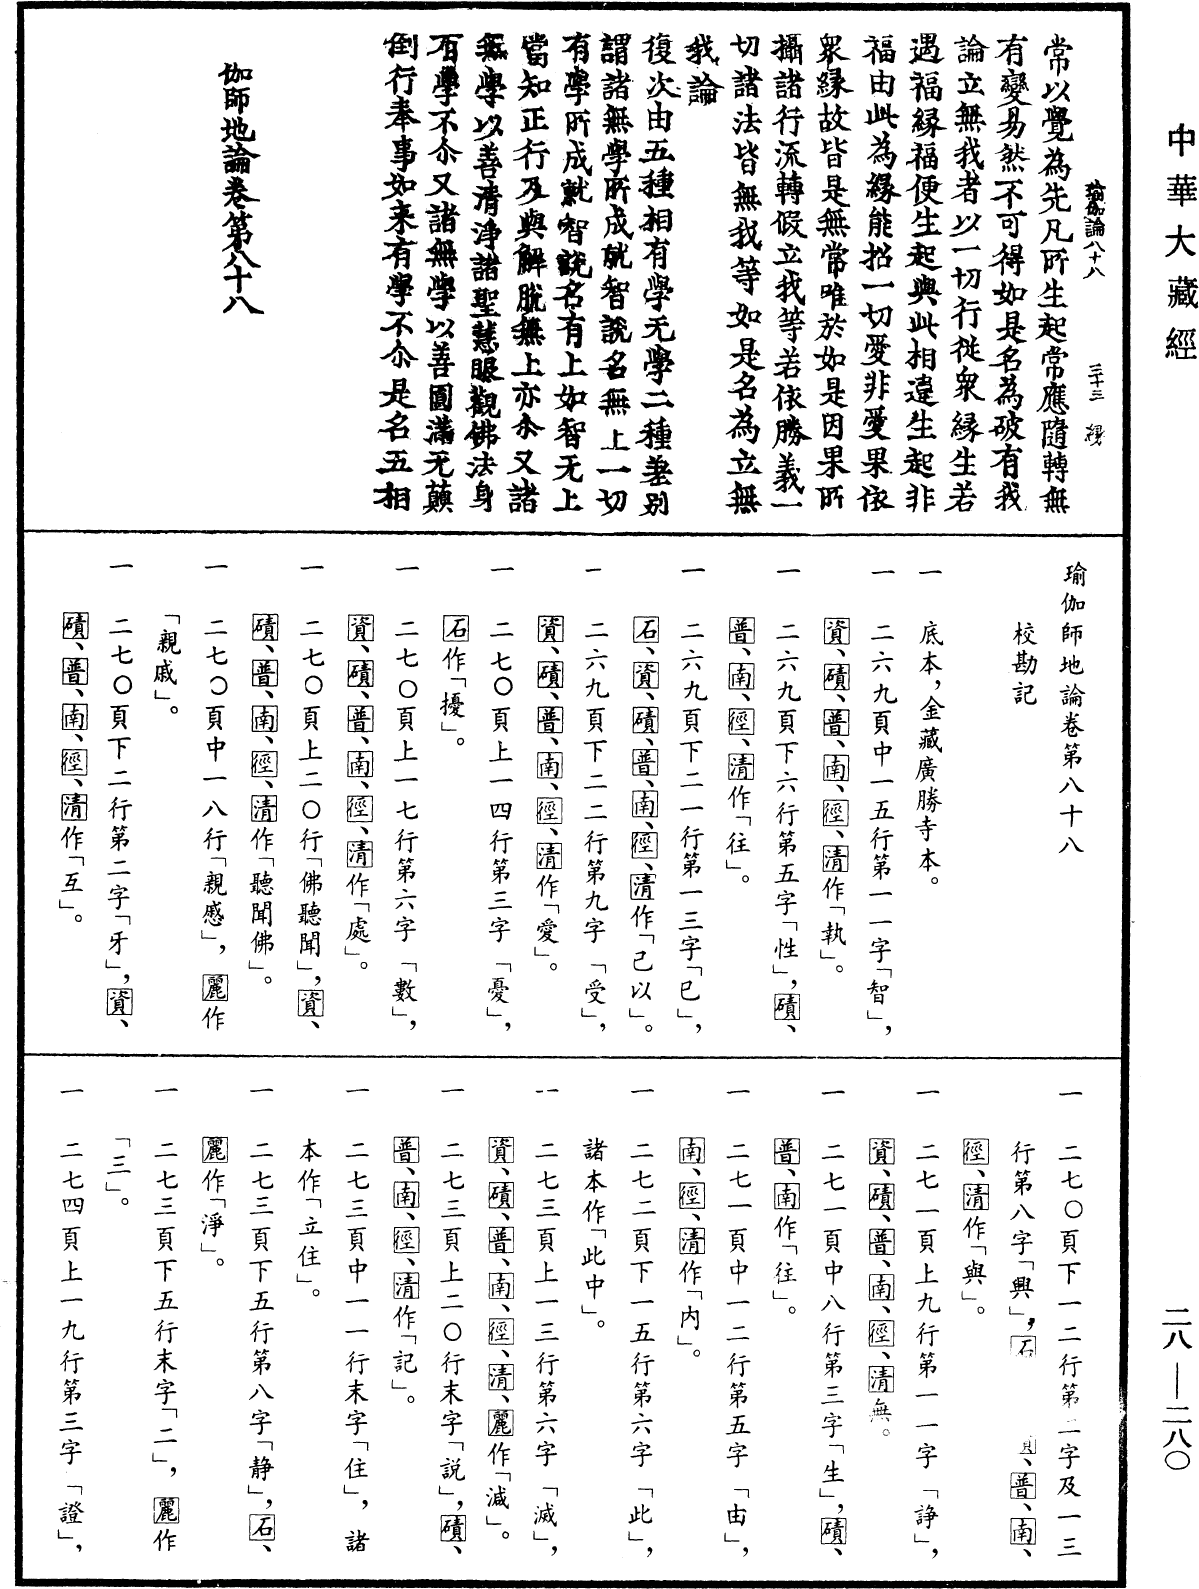 中華大藏經
瑜伽論八十八　三十三　緣
常以覺為先凡所生起常應隨轉無
有變易然不可得如是名為破有我
論立無我者以一切行從衆緣生若
遇福緣福便生起與此相違生起非
福由此為緣能招一切愛非愛果依
衆緣故皆是無常唯於如是因果所
攝諸行流轉假立我等若依勝義一
切諸法皆無我等如是名為立無
我論
復次由五種相有學无學二種差別
謂諸無學所成就智說名無上一切
有學所成就智說名有上如智无上
當知正行及與解脫無上亦尒又諸
無學以善清淨諸聖慧眼觀佛法身
有學不尒又諸無學以善圓滿无顛
倒行奉事如來有學不尒是名五相
伽師地論卷第八十八
瑜伽師地論卷第八十八
校勘記
一　底本，金藏廣勝寺本。
一　二六九頁中一五行第一一字「智」，
資、磧、普、南、徑、清作「執」。
一　二六九頁下六行第五字「性」，磧、
普、南、徑、清作「往」。
一　二六九頁下二一行第一三字「已」，
石、資、磧、普、南、徑、清作「已以」。
一　二六九頁下二二行第九字「受」，
資、磧、普、南、徑、清作「愛」。
一　二七〇頁上一四行第三字「憂」，
石作「擾」。
一　二七〇頁上一七行第六字「數」，
資、磧、普、南、徑、清作「處」。
一　二七〇頁上二〇行「佛聽聞」，資、
磧、普、南、徑、清作「聽聞佛」。
一　二七〇頁中一八行「親慼」，麗作
「親戚」。
一　二七〇頁下二行第二字「牙」，資、
磧、普、南、徑、清作「互」。
一　二七〇頁下一二行第二字及一三
行第八字「興」，石、磧、普、南、
徑、清作「與」。
一　二七一頁上九行第一一字「諍」，
資、磧、普、南、徑、清無。
一　二七一頁中八行第三字「生」，磧、
普、南作「往」。
一　二七一頁中一二行第五字「由」，
南、徑、清作「内」。
一　二七二頁下一五行第六字「此」，
諸本作「此中」。
一　二七三頁上一三行第六字「滅」，
資、磧、普、南、徑、清、麗作「減」。
一　二七三頁上二〇行末字「説」，磧、
普、南、徑、清作「記」。
一　二七三頁中一一行末字「住」，諸
本作「立住」。
一　二七三頁下五行第八字「静」，石、
麗作「淨」。
一　二七三頁下五行末字「二」，麗作
「三」。
一　二七四頁上一九行第三字「證」，
二八—二八〇